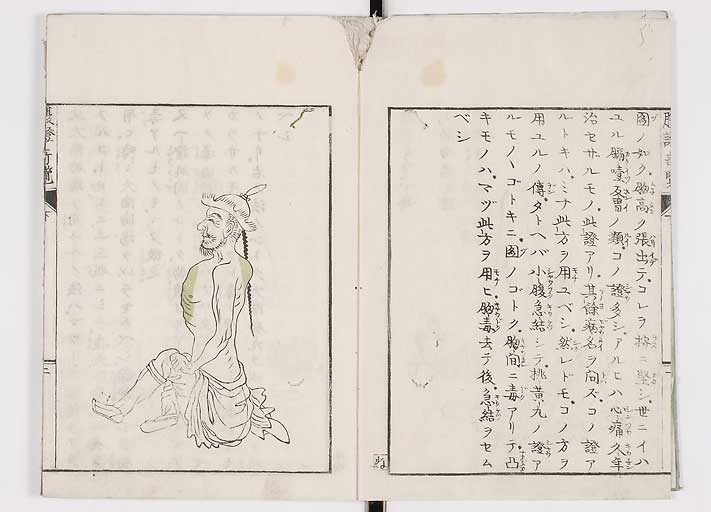 圖ノ如ク胸高ク張出テコレヲ按ニ堅シ世ニイハ
ユル膈噎反胃ノ類コノ證多シアルヒハ心痛久年
治セサルモノ此證アリ其餘病名ヲ問ズコノ證ア
ルトキハミナ此方ヲ用ユベシ然レドモコノ方ヲ
用ユルノ傳タトヘバ小腹急結シテ桃黄丸ノ證ア
ルモノヽゴトキニ圖ノゴトク胸間ニ毒アリテ凸
キモノハマヅ此方ヲ用ヒ胸毒去テ後急結ヲセム
ベシ